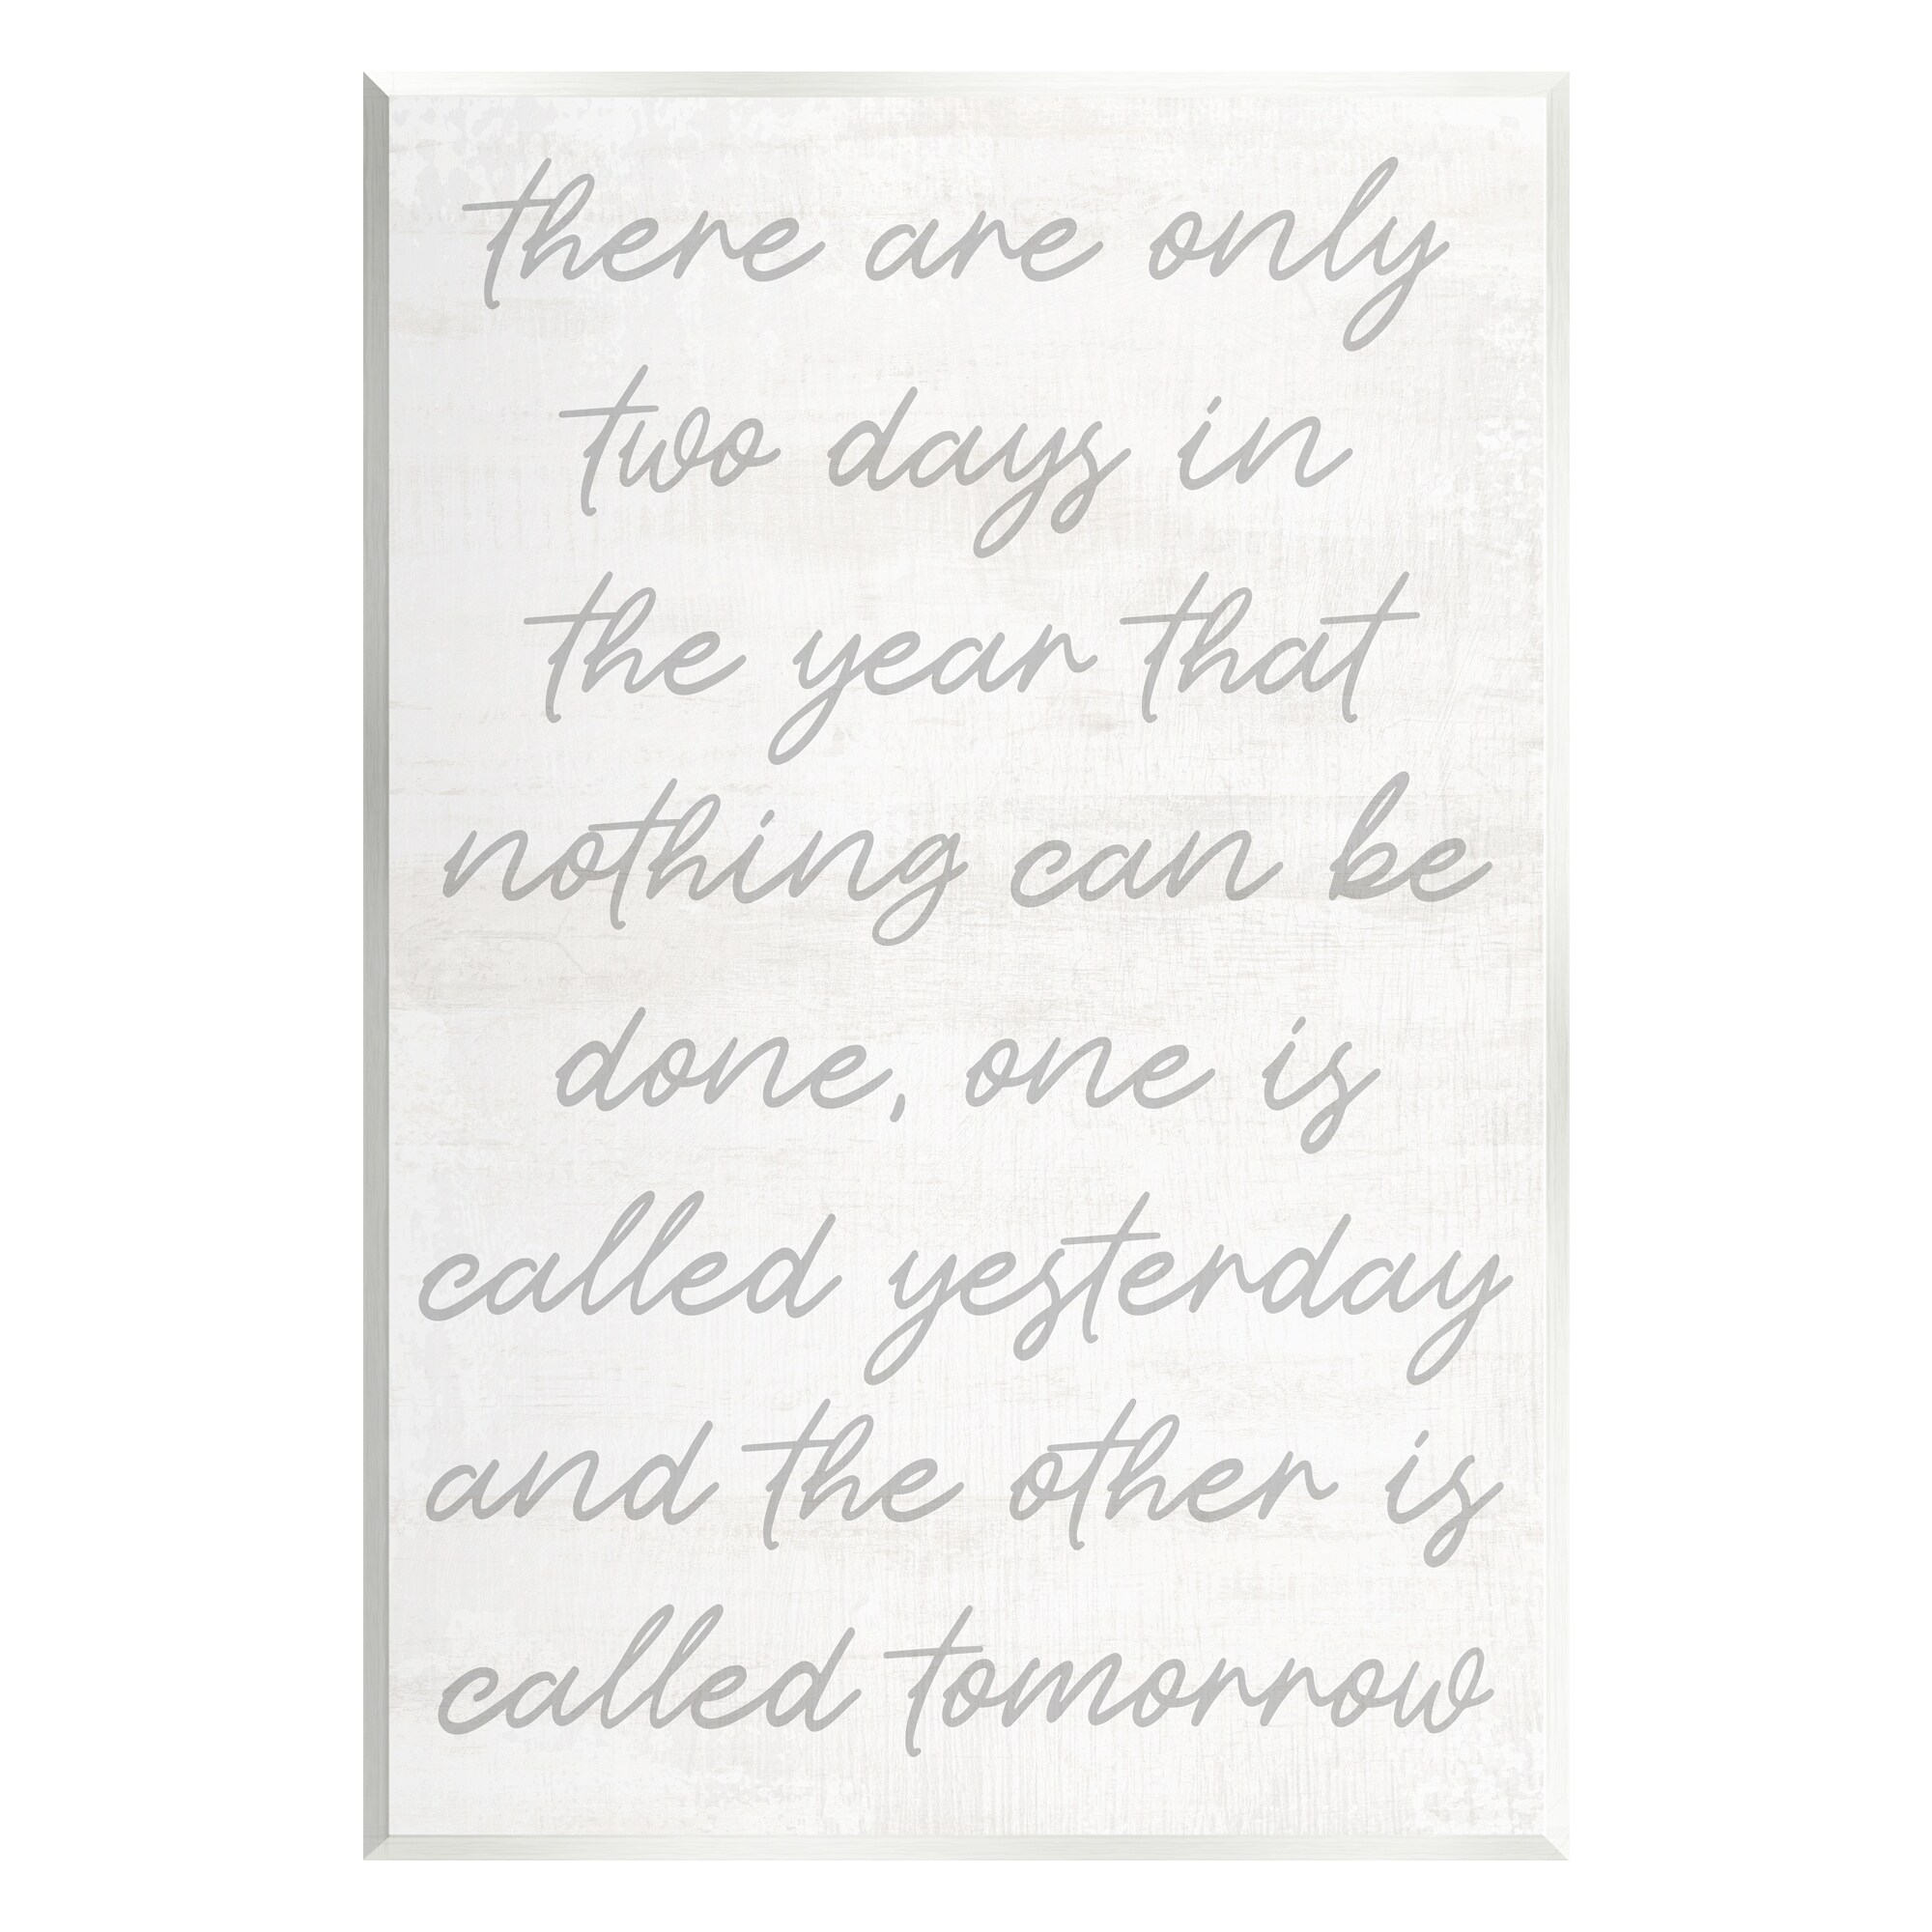 there are only
two days in
the year that
nothing can be
done, one is
called yesterday
and the other is
called tomorrow